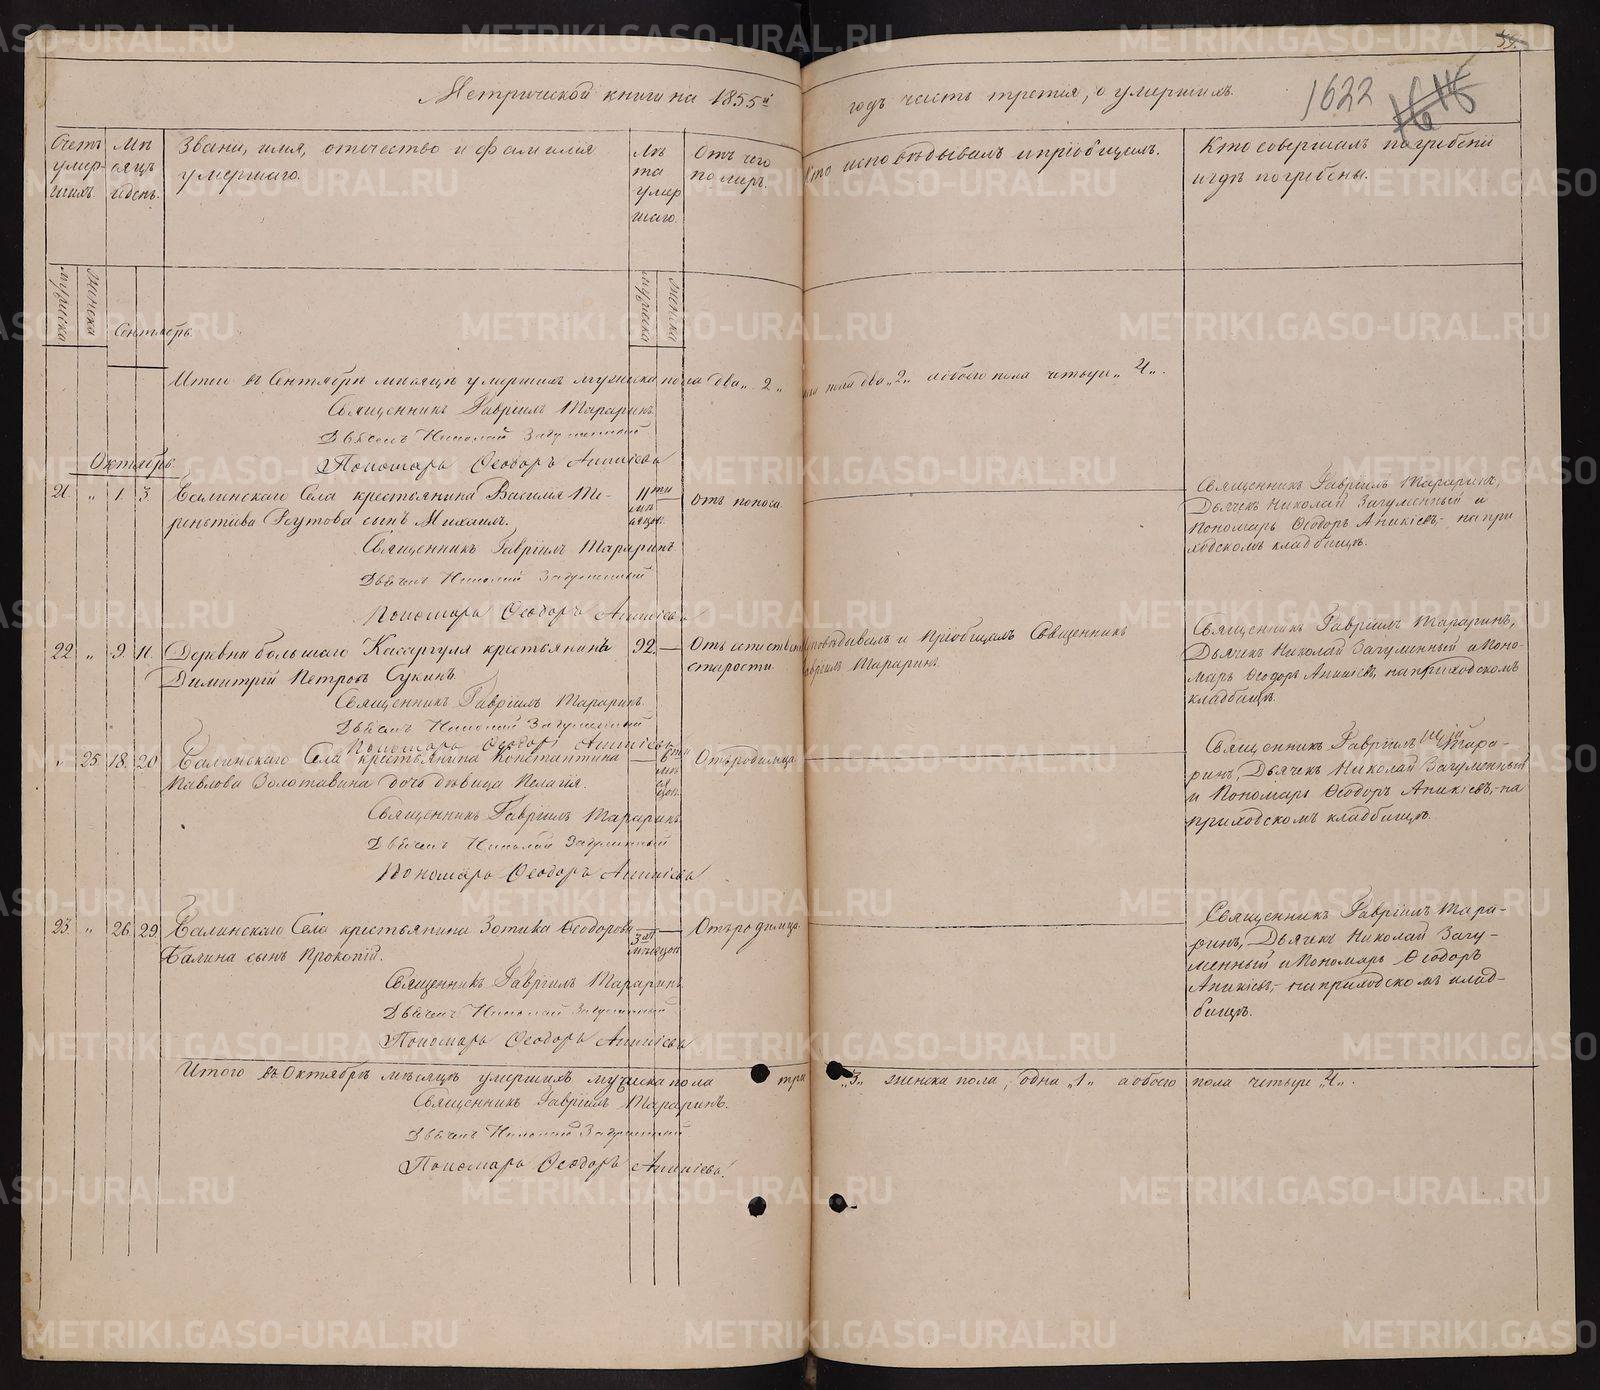 Метрической книги на 1855й годъ часть третія, о умершихъ.
1622
Счетъ умершихъ.
Мѣсяцъ и день.
Званіе, имя, отечество и фамилія умершаго.
Лѣта умершаго.
Отъ чего померъ.
Кто исповѣдывалъ и пріобщалъ.
Кто совершалъ погребеніе
и гдѣ погребены.
мужска
женска
мужска
женска
Сентябрь.
Итого въ Сентябрѣ мѣсяцѣ умершихъ мужска пола два „2„ женска пола два „2„ а обоего пола четыре „4„.
Священникъ Гавріилъ Тараринъ
Дьячекъ Николай Загуменный
Пономарь Ѳеодоръ Аникіевъ
Октябрь.
21. „ 1. 3. Балинскаго Села крестьянина Василія Те-
рентьева Реутова сынъ Михаилъ.
11ти мѣсяцовъ.
Отъ поноса.
Священникъ Гавріилъ Тараринъ,
Дьячекъ Николай Загуменный и
Пономарь Ѳеодоръ Аникіевъ,- на при
ходскомъ кладбищѣ.
Священникъ Гавріилъ Тараринъ
Дьячекъ Николай Загуменный
Пономарь Ѳеодоръ Аникіевъ
22. „ 9. 11. Деревни большаго Касаргуля крестьянинъ
Димитрій Петровъ Сукинъ.
92. —
Отъ естественной
старости.
Исповѣдывалъ и пріобщалъ Священникъ
Гавріилъ Тараринъ.
Священникъ Гавріилъ Тараринъ,
Дьячекъ Николай Загуменный и Поно-
марь Ѳеодоръ Аникіевъ, на приходскомъ
кладбищѣ.
Священникъ Гавріилъ Тараринъ.
Дьячекъ Николай Загуменный
Пономарь Ѳеодоръ Аникіевъ
„ 25 18. 20 Балинскаго Села крестьянина Константина
Павлова Золотавина дочь дѣвица Пелагія.
— 6ти мѣсяцов.
Отъ родимца.
Священникъ Гавріилъ Тара-
ринъ, Дьячекъ Николай Загуменный
и Пономарь Ѳеодоръ Аникіевъ,- на
приходскомъ кладбищѣ.
Священникъ Гавріилъ Тараринъ
Дьячекъ Николай Загуменный
Пономарь Ѳеодоръ Аникіевъ
23. „ 26. 29. Балинскаго Села крестьянина Зотика Ѳеодорова
Балина сынъ Прокопій.
3хъ мѣсяцов
Отъ родимца.
Священникъ Гавріилъ Тара-
ринъ, Дьячекъ Николай Загу-
менный и Пономарь Ѳеодоръ
Аникіевъ,- на приходскомъ клад-
бищѣ.
Священникъ Гавріилъ Тараринъ
Дьячекъ Николай Загуменный
Пономарь Ѳеодоръ Аникіевъ
Итого въ Октябрѣ мѣсяцѣ умершихъ мужска пола три „3„ женска пола, одна „1„ а обоего пола четыре „4„.
Священникъ Гавріилъ Тараринъ.
Дьячекъ Николай Загуменный
Пономарь Ѳеодоръ Аникіевъ.
METRIKI.GASO-URAL.RU